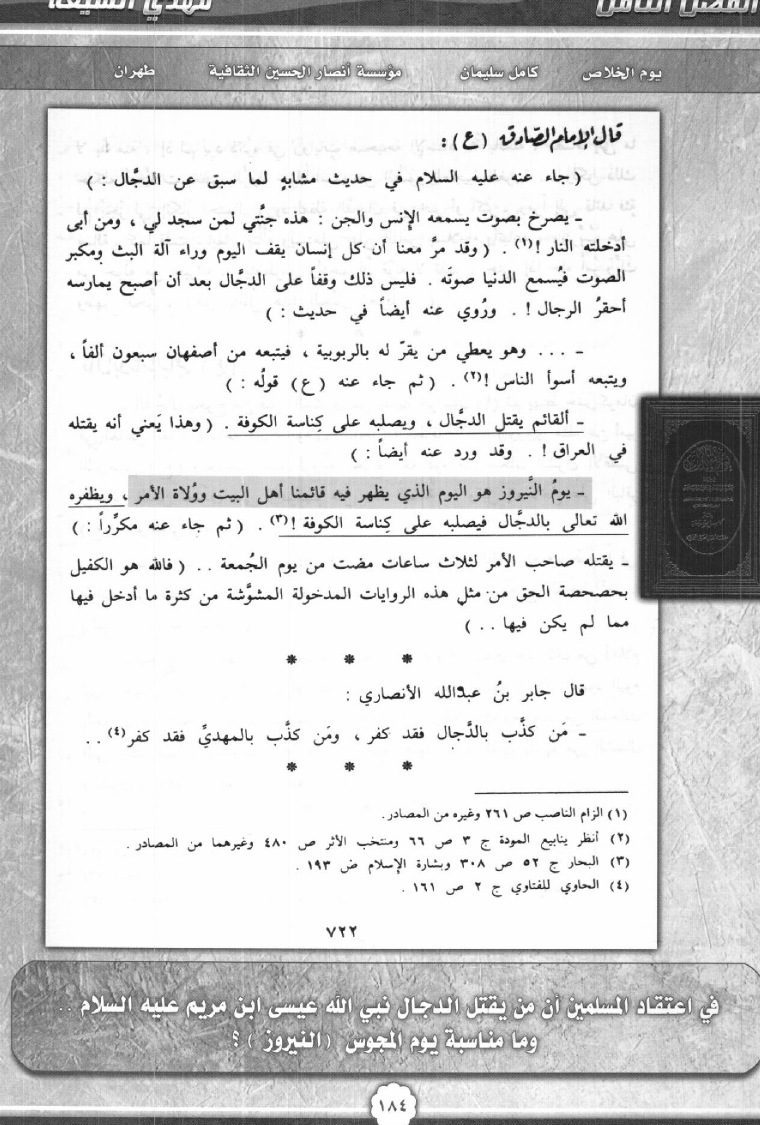 الفصل الثامن
مهدي الشيعة
يوم الخلاص كامل سليمان مؤسسة أنصار الحسين الثقافية طهران
قال الإمام الصادق (ع) :
( جاء عنه عليه السلام في حديث مشابهٍ لما سبق عن الدجَّال : )
ـ يصرخ بصوت يسمعه الإنس والجن : هذه جنَّتي لمن سجد لي ، ومن أبى
أدخلته النار !(١) . ( وقد مرَّ معنا أن كل إنسان يقف اليوم وراء آلة البث ومكبر
الصوت فيُسمع الدنيا صوتَه . فليس ذلك وقفاً على الدجَّال بعد أن أصبح يمارسه
أحقرُ الرجال ! . ورُوي عنه أيضاً في حديث : )
ـ ... وهو يعطي من يقرّ له بالربوبية ، فيتبعه من أصفهان سبعون ألفاً ،
ويتبعه أسوأ الناس !(٢) . ( ثم جاء عنه (ع) قولُه : )
ـ ألقائم يقتل الدجَّال ، ويصلبه على كِناسة الكوفة . ( وهذا يَعني أنه يقتله
في العراق ! . وقد ورد عنه أيضاً : )
ـ يومُ النَّيروز هو اليوم الذي يظهر فيه قائمنا أهل البيت ووُلاة الأمر ، ويظفره
الله تعالى بالدجَّال فيصلبه على كِناسة الكوفة !(٣) . ( ثم جاء عنه مكرِّراً : )
ـ يقتله صاحب الأمر لثلاث ساعات مضت من يوم الجُمعة .. ( فالله هو الكفيل
بحصحصة الحق من مثلِ هذه الروايات المدخولة المشوَّشة من كثرة ما أدخل فيها
مما لم يكن فيها .. )
* * *
قال جابر بنُ عبدالله الأنصاري :
ـ مَن كذَّب بالدَّجال فقد كفر ، ومَن كذَّب بالمهديِّ فقد كفر(٤) ..
* * *
(١) الزام الناصب ص ٢٦١ وغيره من المصادر .
(٢) أنظر ينابيع المودة ج ٣ ص ٦٦ ومنتخب الأثر ص ٤٨٠ وغيرهما من المصادر .
(٣) البحار ج ٥٢ ص ٣٠٨ وبشارة الإسلام ض ١٩٣ .
(٤) الحاوي للفتاوي ج ٢ ص ١٦١ .
٧٢٢
في اعتقاد المسلمين أن من يقتل الدجال نبي الله عيسى ابن مريم عليه السلام ..
وما مناسبة يوم المجوس ( النيروز ) ؟
١٨٤